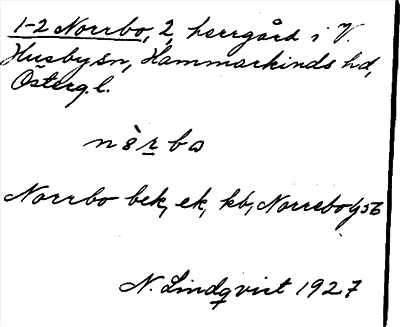 1-2 Norrbo, 2, herrgård i V.
Husby sn, Hammarkinds hd,
Österg. l.
Norrbo bek, ek, kb, Norrebo
N. Lindqvist 1927